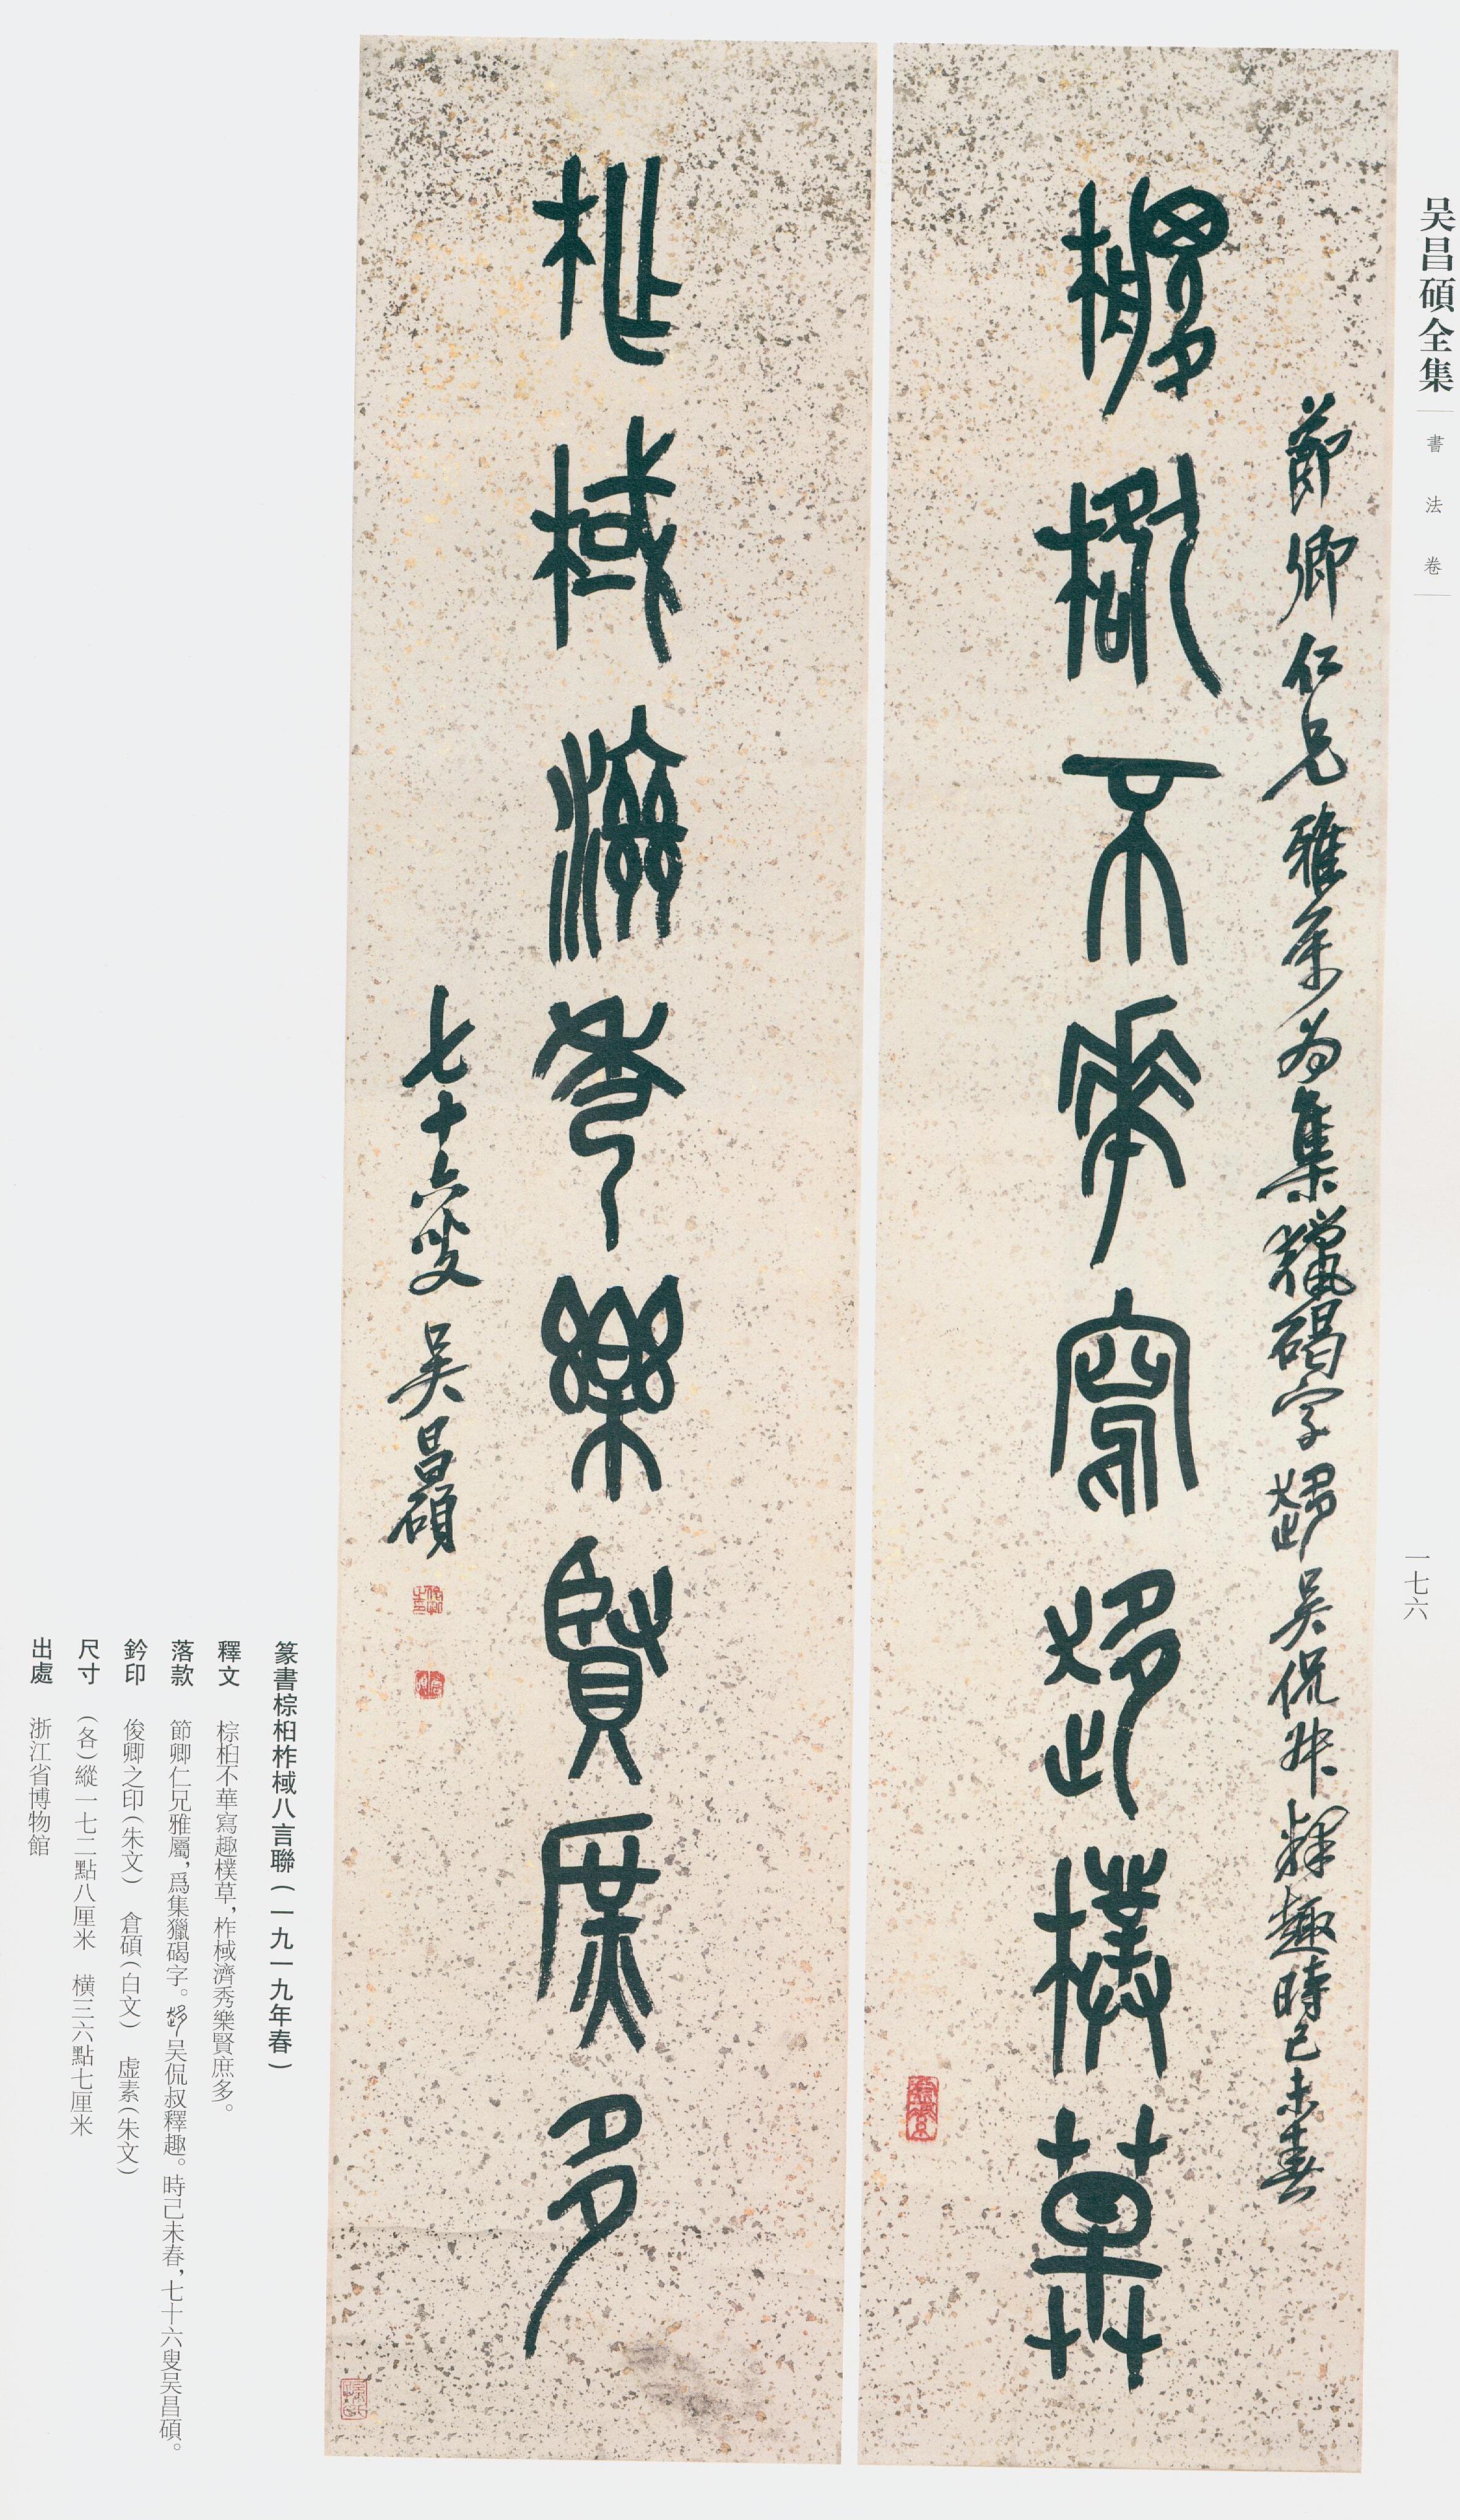 吴昌碩全集
書法卷
一七六
節卿仁兄雅屬為集獵碣字
吴侃叔釋趣時己未春
棕桕不華寫趣樸草
柞棫濟秀樂賢庶多
七十六叟吴昌碩
篆書棕桕柞棫八言聯（一九一九年春）
釋文 棕桕不華寫趣樸草，柞棫濟秀樂賢庶多。
落款 節卿仁兄雅屬，爲集獵碣字。吴侃叔釋趣。時己未春，七十六叟吴昌碩。
鈐印 俊卿之印（朱文） 倉碩（白文） 虚素（朱文）
尺寸 （各）縱一七二點八厘米 橫三六點七厘米
出處 浙江省博物館